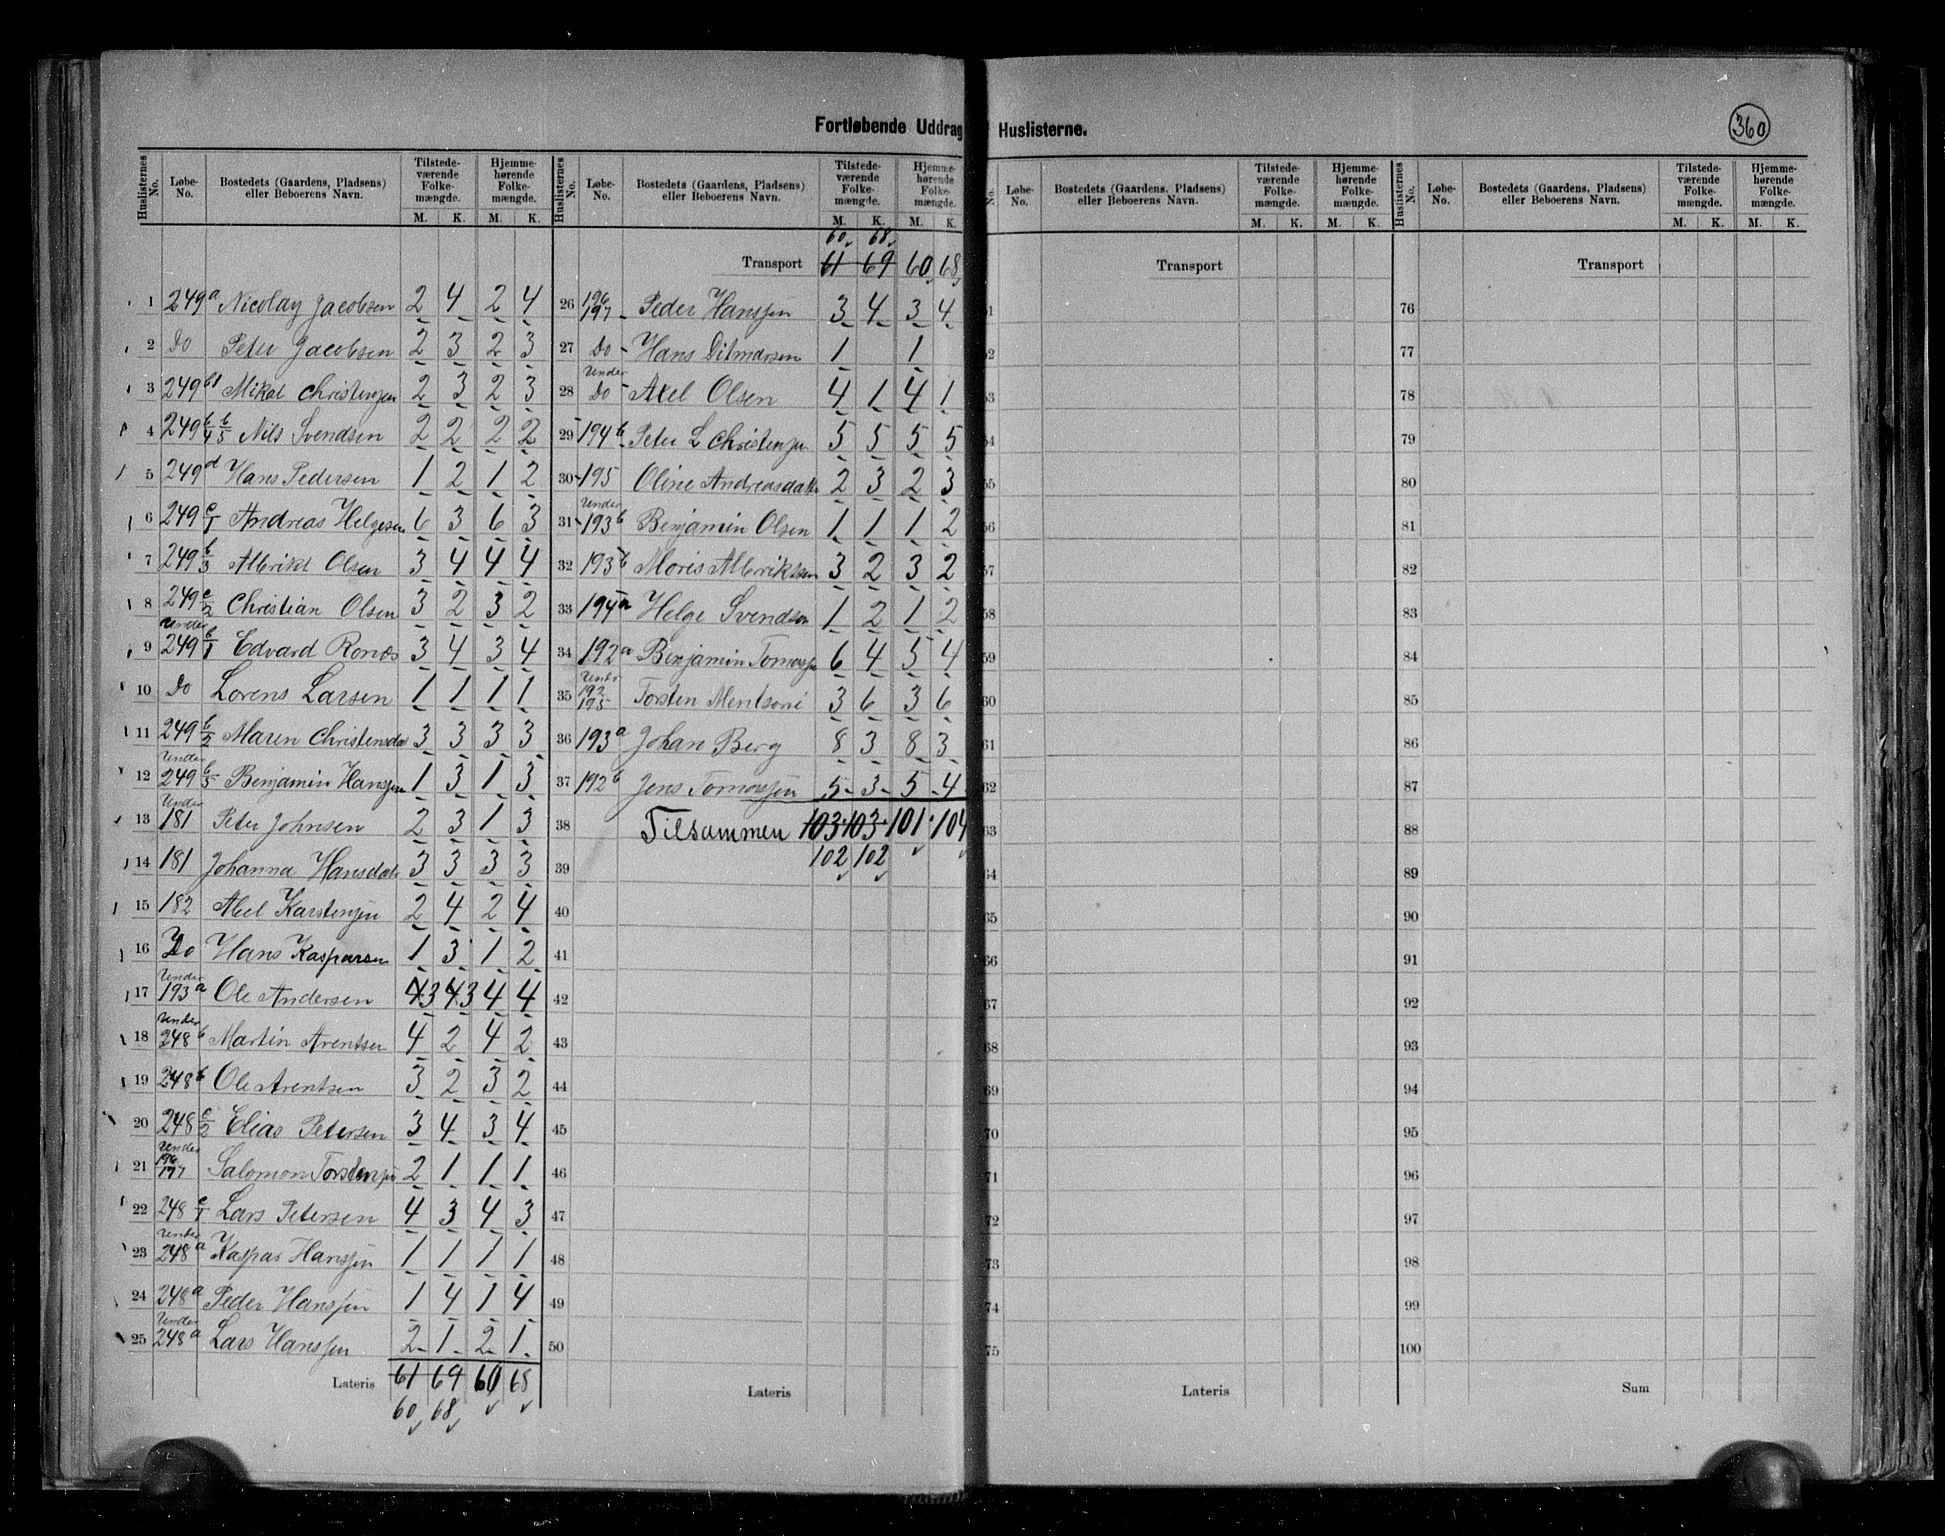 Fortløbende Uddrag Huslisterne.
360
Huslisternes No. Løbe-No. Bostedets (Gaardens, Pladsens) eller Beboerens Navn. Tilstede-værende Folke-mængde. M. K. Hjemme-hørende Folke-mængde. M. K.
1 249a Nicolay Jacobsen 2 4 2 4
2 Do Peter Jacobsen 2 3 2 3
3 249b1 Mikal Christensen 2 3 2 3
4 249 b/4 b/5 Nils Svendsen 2 2 2 2
5 249d Hans Pedersen 1 2 1 2
6 249 c/1 Andreas Helgesen 6 3 6 3
7 249 b/3 Albrikt Olsen 3 4 4 4
8 249 c/2 Christian Olsen 3 2 3 2
9 Under 249 b/1 Edvard Ronæs 3 4 3 4
10 Do Lorens Larsen 1 1 1 1
11 249 b/2 Maren Christensda 3 3 3 3
12 Under 249 b/5 Benjamin Hanssen 1 3 1 3
13 Under 181 Peter Johnsen 2 3 1 3
14 181 Johanna Hansdatr 3 3 3 3
15 182 Abel Karstensen 2 4 2 4
16 Do Hans Kasparsen 1 3 1 2
17 Under 193a Ole Andersen 4 3 4 3 4 4
18 Under 248b Martin Arentsen 4 2 4 2
19 248b Ole Arentsen 3 2 3 2
20 248 c/2 Elias Petersen 3 4 3 4
21 Under 196/197 Salomon Torstensen 2 1 1 1
22 248 c/1 Lars Petersen 4 3 4 3
23 Under 248a Kaspar Hanssen 1 1 1 1
24 248a Peder Hanssen 1 4 1 4
25 Under 248a Lars Hanssen 2 1 2 1
Lateris 61 69 60 68
60 68
Huslisternes No. Løbe-No. Bostedets (Gaardens, Pladsens) eller Beboerens Navn. Tilstede-værende Folke-mængde. M. K. Hjemme-hørende Folke-mængde. M. K.
60 68
Transport 61 69 60 68
26 196 197 Peder Hanssen 3 4 3 4
27 Do Hans Ditmarsen 1 1
28 Under Do Axel Olsen 4 1 4 1
29 194b Peter L Christensen 5 5 5 5
30 195 Oline Andreasdatr 2 3 2 3
31 Under 193b Benjamin Olsen 1 1 1 2
32 193b Moris Albriktsen 3 2 3 2
33 194a Helge Svendsen 1 2 1 2
34 192a Benjamin Tomassen 6 4 5 4
35 Under 192 195 Torsten Mentsoni 3 6 3 6
36 193a Johan Berg 8 3 8 3
37 192b Jens Tomassen 5 3 5 4
38 Tilsammen 103 103 101 104
102 102
39
40
41
42
43
44
45
46
47
48
49
50
Lateris
No. Løbe-No. Bostedets (Gaardens, Pladsens) eller Beboerens Navn. Tilstede-værende Folke-mængde. M. K. Hjemme-hørende Folke-mængde. M. K.
Transport
51
52
53
54
55
56
57
58
59
60
61
62
63
64
65
66
67
68
69
70
71
72
73
74
75
Lateris
Huslisternes No. Løbe-No. Bostedets (Gaardens, Pladsens) eller Beboerens Navn. Tilstede-værende Folke-mængde. M. K. Hjemme-hørende Folke-mængde. M. K.
Transport
76
77
78
79
80
81
82
83
84
85
86
87
88
89
90
91
92
93
94
95
96
97
98
99
100
Sum